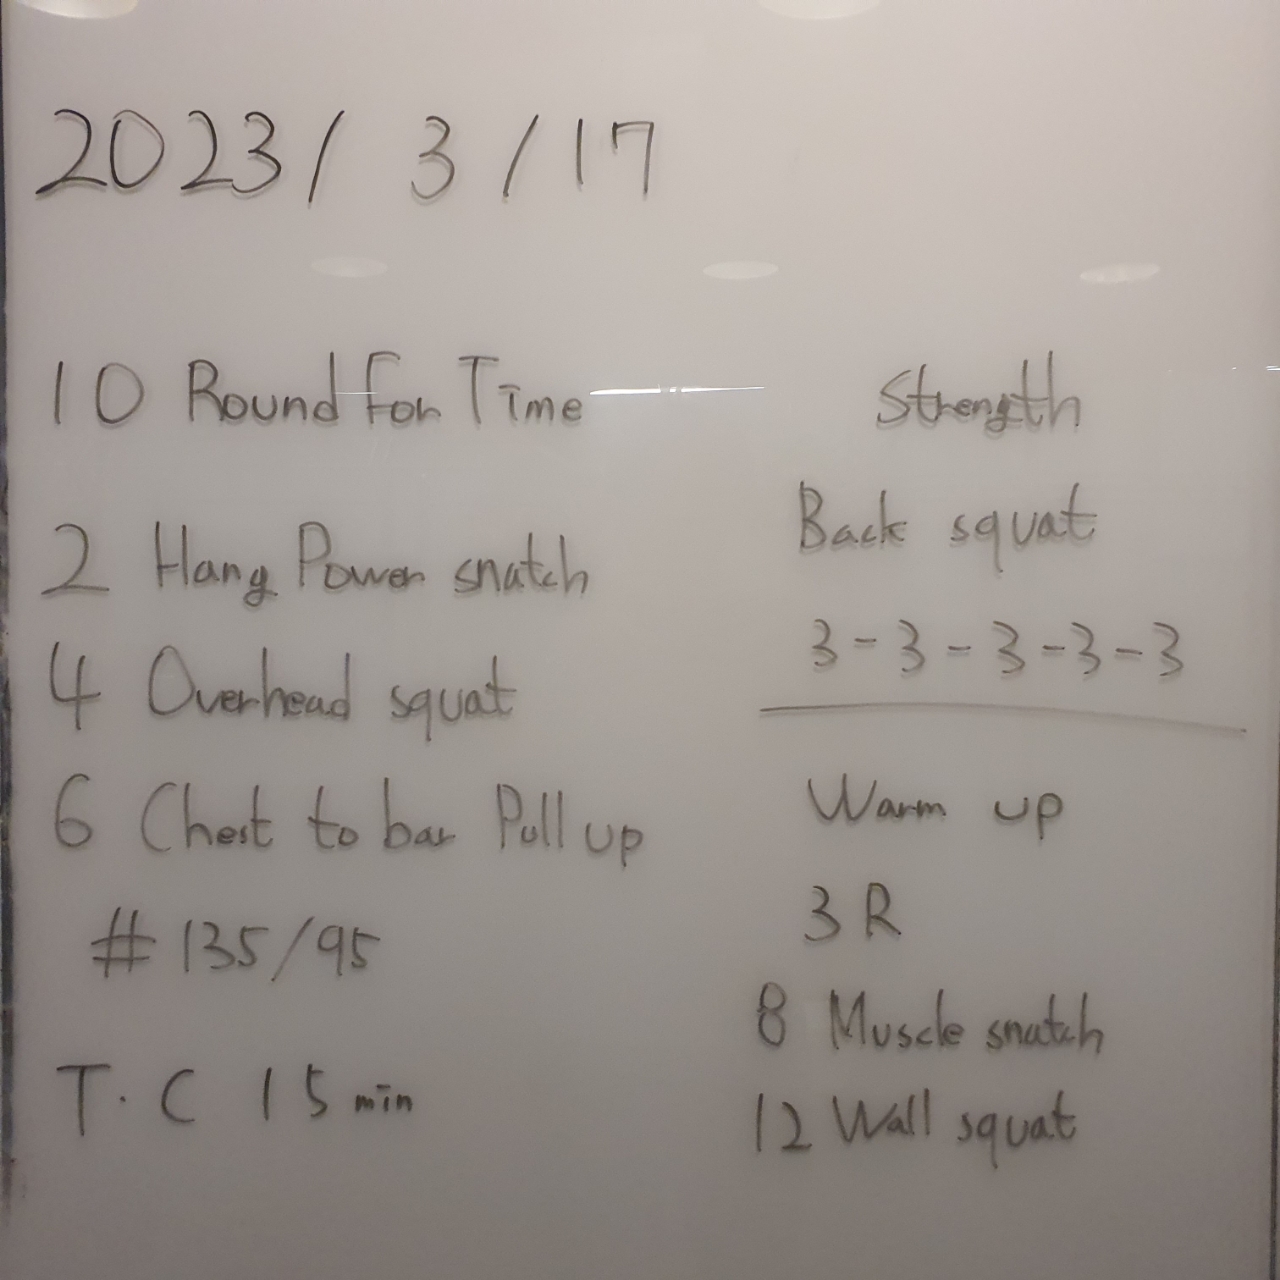 2023/ 3/17
10 Round For Time
2 Hang Power snatch
4 Overhead squat
6 Chest to bar Pull up
# 135/95
T.C 15 min
Strength
Back squat
3-3-3-3-3
Warm up
3R
8 Muscle snatch
12 Wall squat